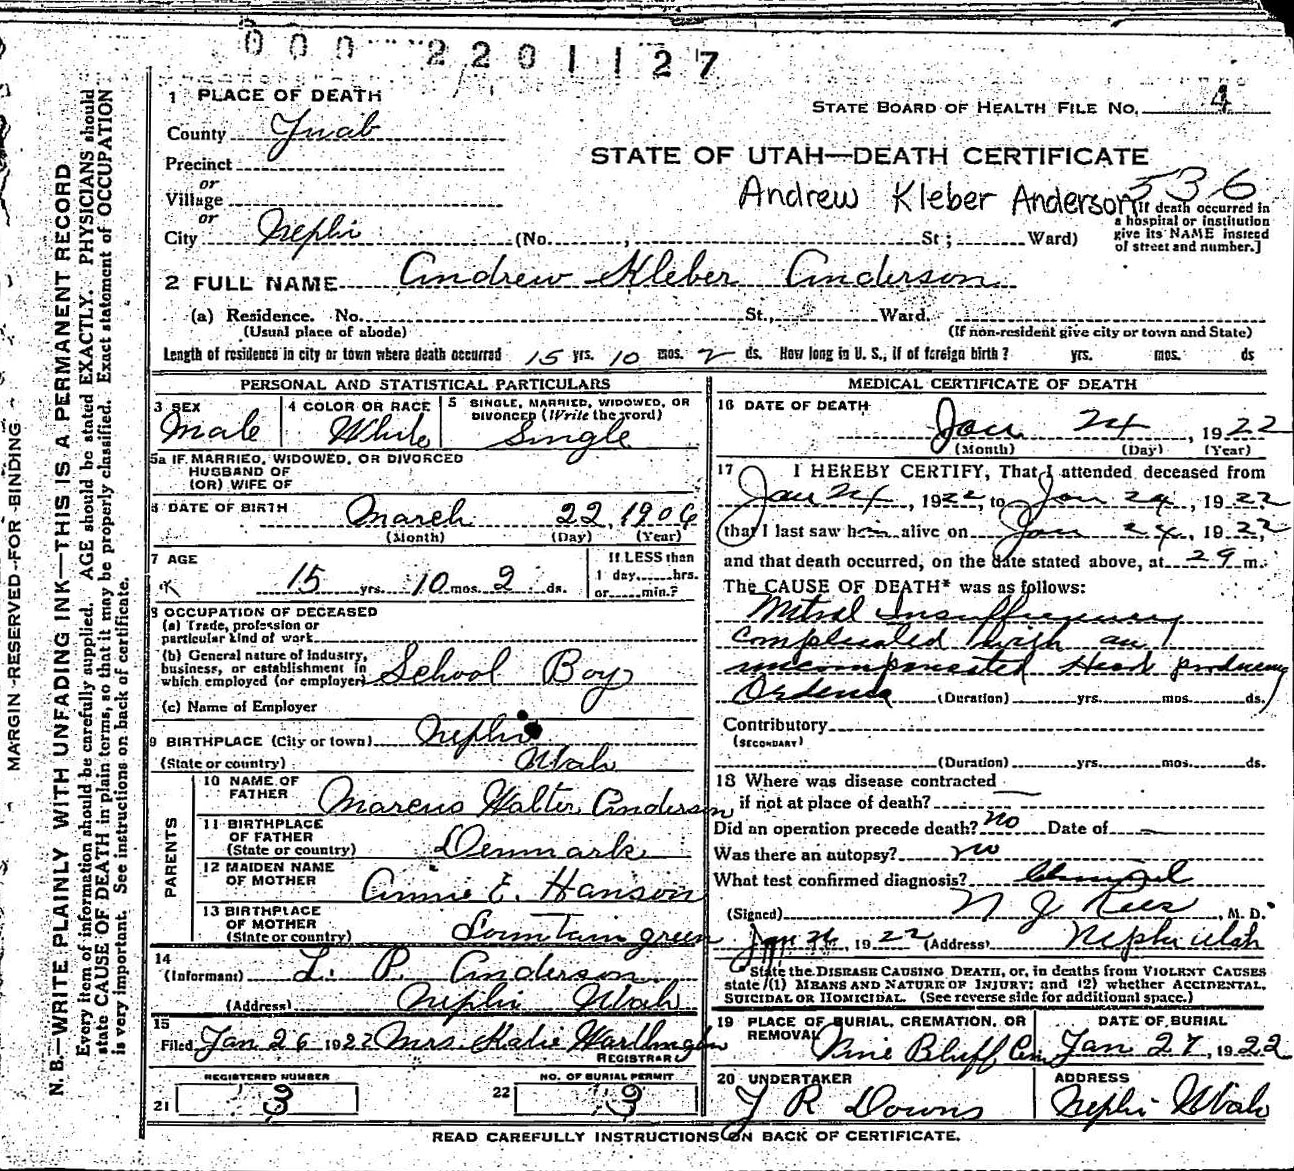 000 2201127
1 PLACE OF DEATH
STATE BOARD OF HEALTH FILE NO. 4
County Juab
Precinct
STATE OF UTAH—DEATH CERTIFICATE
or
Village
Andrew Kleber Anderson 536
or
City Nephi (No. , St ; Ward)
[If death occurred in
a hospital or institution
give its NAME instead
of street and number.]
2 FULL NAME Andrew Kleber Anderson
(a) Residence. No. St., Ward.
(Usual place of abode) (If non-resident give city or town and State)
Length of residence in city or town where death occurred 15 yrs. 10 mos. 2 ds. How long in U. S., if of foreign birth ? yrs. mos. ds
PERSONAL AND STATISTICAL PARTICULARS
3 SEX
Male
4 COLOR OR RACE
White
5 SINGLE, MARRIED, WIDOWED, OR
DIVORCED (Write the word)
Single
5a IF MARRIED, WIDOWED, OR DIVORCED
HUSBAND OF
(OR) WIFE OF
6 DATE OF BIRTH March 22, 1906
(Month) (Day) (Year)
7 AGE
15 yrs. 10 mos. 2 ds.
If LESS than
1 day, hrs.
or min.?
8 OCCUPATION OF DECEASED
(a) Trade, profession or
particular kind of work
(b) General nature of industry,
business, or establishment in
which employed (or employer) School Boy
(c) Name of Employer
9 BIRTHPLACE (City or town) Nephi
(State or country) Utah
PARENTS
10 NAME OF
FATHER Marcus Walter Anderson
11 BIRTHPLACE
OF FATHER
(State or country) Denmark
12 MAIDEN NAME
OF MOTHER Annie E. Hanson
13 BIRTHPLACE
OF MOTHER
(State or country) Fountain green
14
(Informant) L. P. Anderson
(Address) Nephi Utah
15
Filed Jan 26 1922 Mrs. Katie
REGISTRAR
REGISTERED NUMBER
21 3
NO. OF BURIAL PERMIT
22 3
MEDICAL CERTIFICATE OF DEATH
16 DATE OF DEATH
Jan 24, 1922
(Month) (Day) (Year)
17 I HEREBY CERTIFY, That I attended deceased from
Jan 24, 1922, to Jan 24, 1922
that I last saw him alive on Jan 24, 1922,
and that death occurred, on the date stated above, at m.
The CAUSE OF DEATH* was as follows:
Mitral Insufficiency
complicated with an
uncompensated Heart producing
(Duration) yrs. mos. ds.
Contributory
(SECONDARY)
(Duration) yrs. mos. ds.
18 Where was disease contracted
if not at place of death?
Did an operation precede death? no Date of —
Was there an autopsy? no
What test confirmed diagnosis?
(Signed) N J Rees, M. D.
Jan 26, 1922 (Address) Nephi Utah
*State the DISEASE CAUSING DEATH, or, in deaths from VIOLENT CAUSES
state (1) MEANS AND NATURE OF INJURY; and (2) whether ACCIDENTAL,
SUICIDAL OR HOMICIDAL. (See reverse side for additional space.)
19 PLACE OF BURIAL, CREMATION, OR
REMOVAL
Vine Bluff Cem
DATE OF BURIAL
Jan 27, 1922
20 UNDERTAKER
J R Downs
ADDRESS
Nephi Utah
READ CAREFULLY INSTRUCTIONS ON BACK OF CERTIFICATE.
MARGIN RESERVED FOR BINDING
N. B.—WRITE PLAINLY WITH UNFADING INK—THIS IS A PERMANENT RECORD
Every item of information should be carefully supplied. AGE should be stated EXACTLY. PHYSICIANS should
state CAUSE OF DEATH in plain terms, so that it may be properly classified. Exact statement of OCCUPATION
is very important. See instructions on back of certificate.